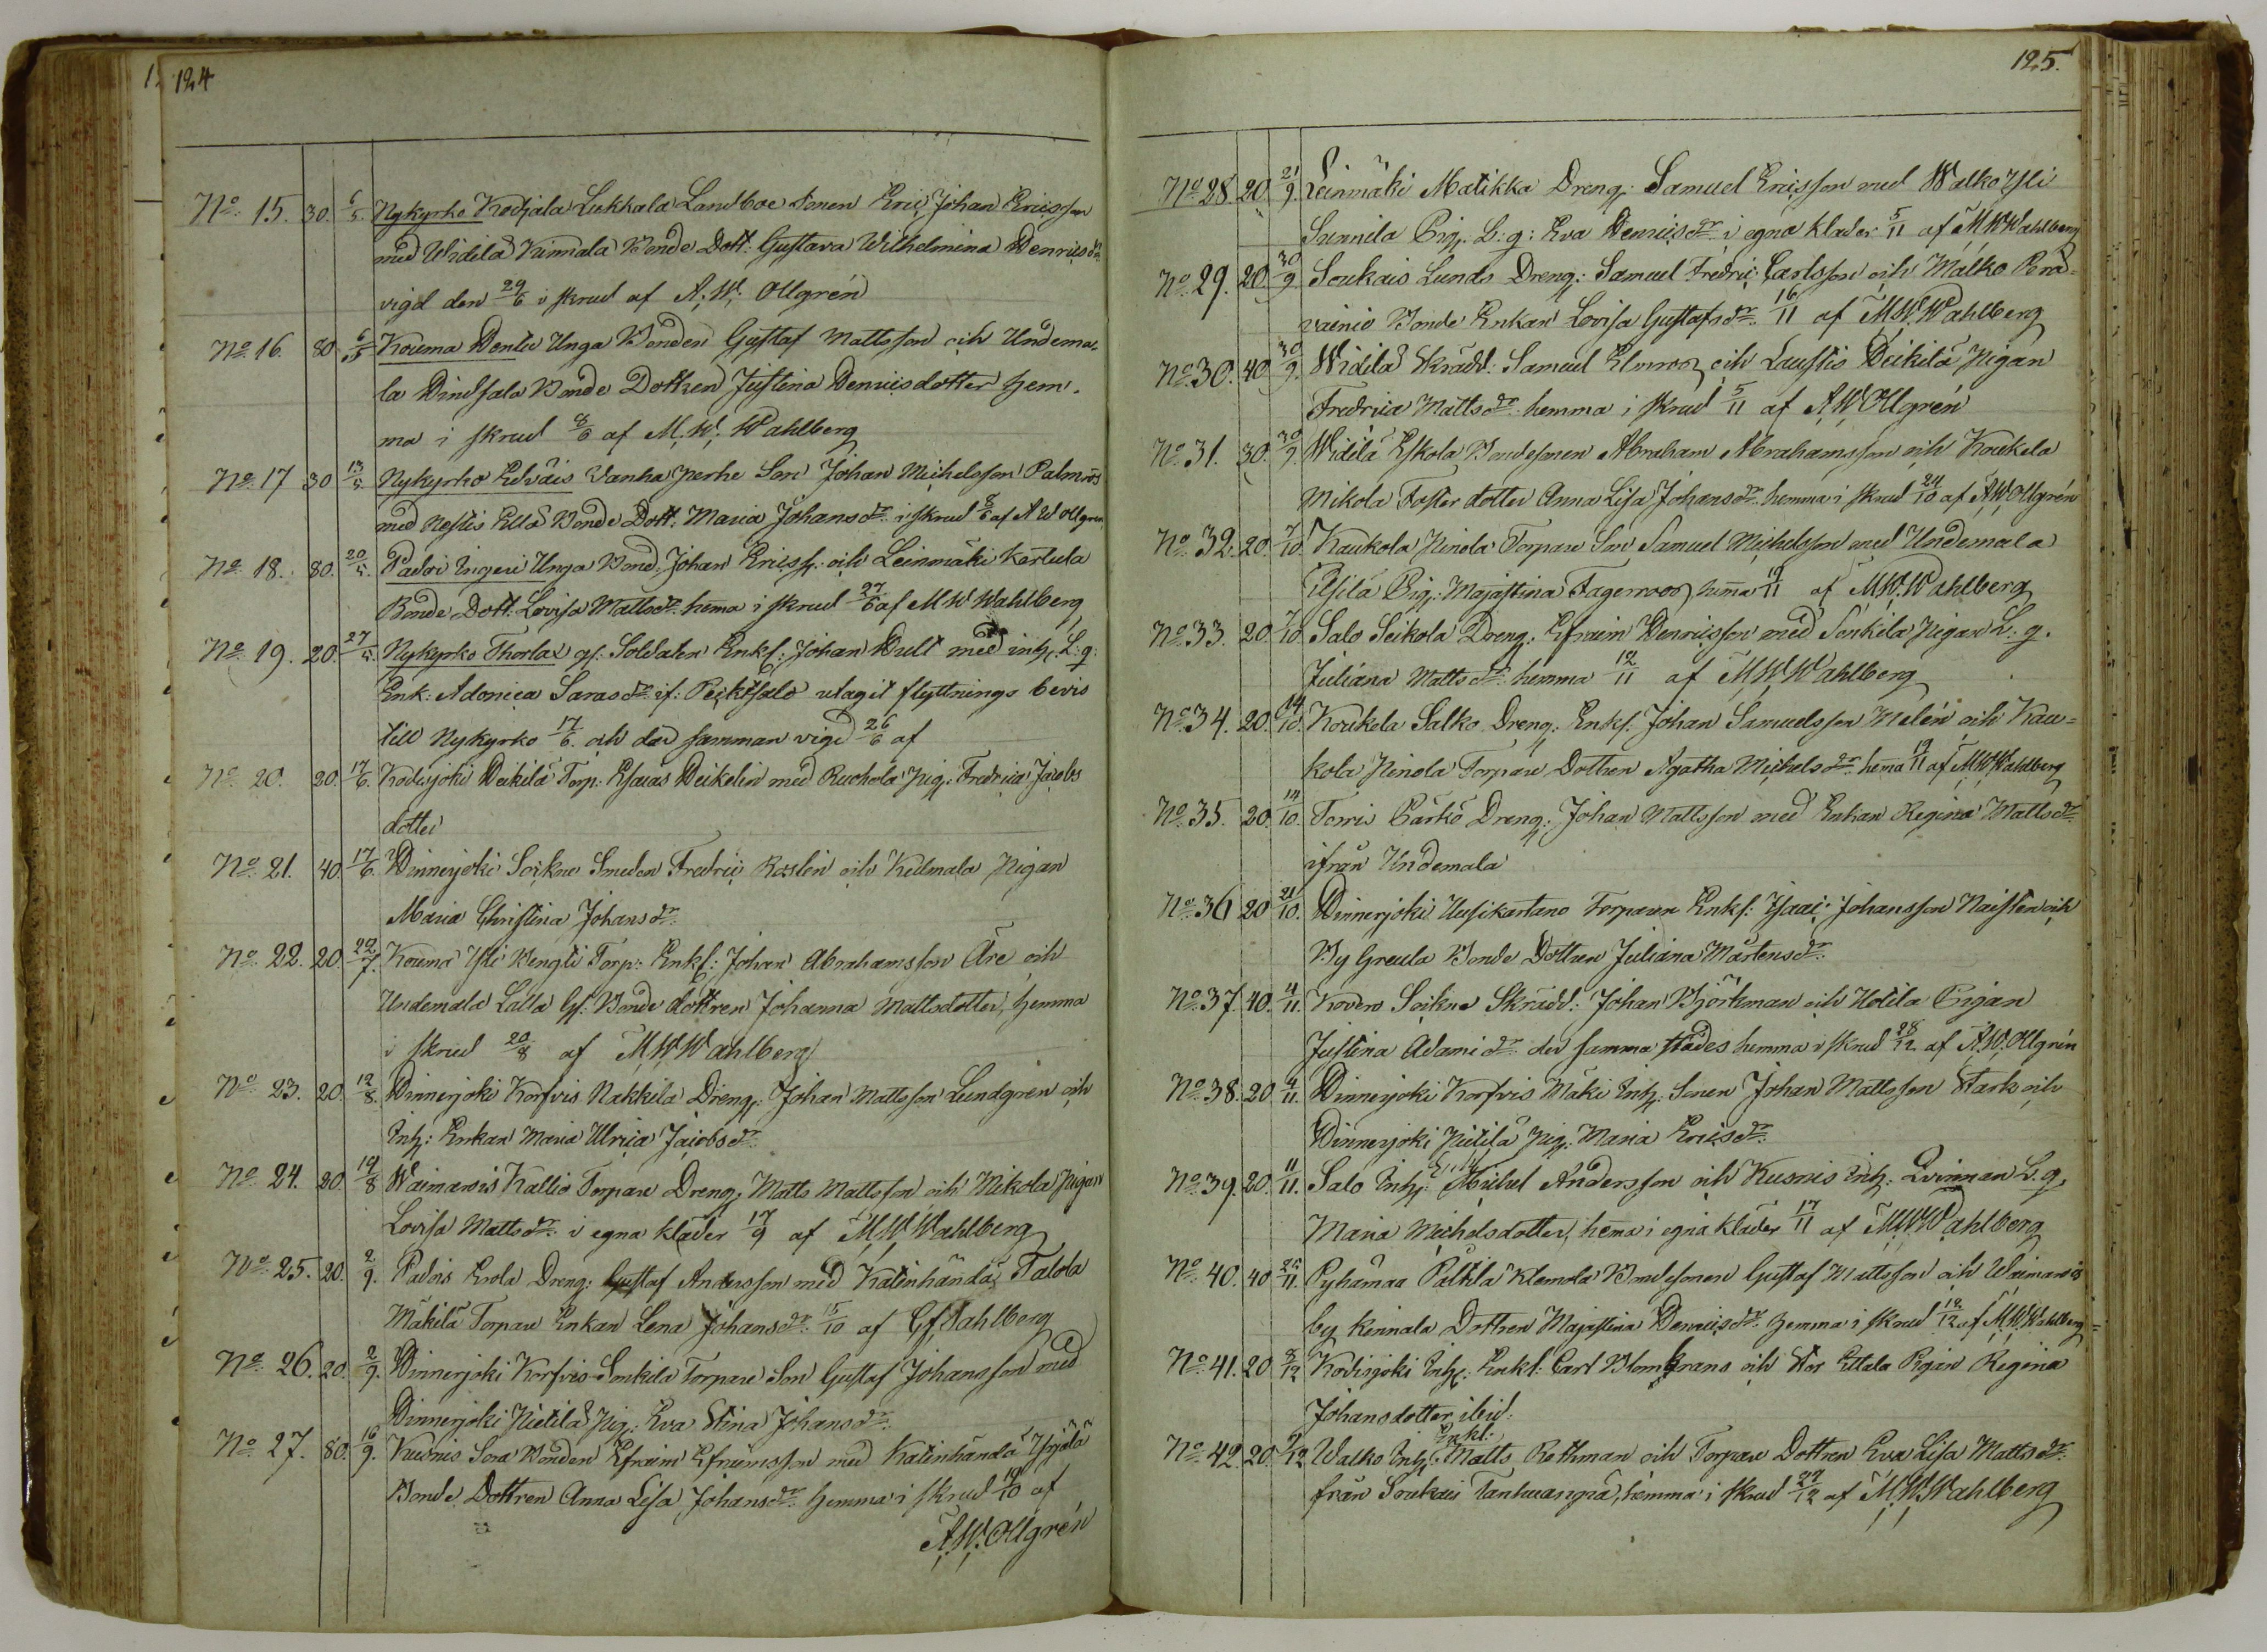 124
No 15. 30. 6/5. Nykyrko Kodjala Lukkala Landboe Sonen Eric Johan Ericsson
med Widila Kinnala Bonde Dott: Gustava Wilhelmina Henricsdr
vigd den 29/6 i skrud af A: W: Ollgrén
No 16. 80. 6/5 Kouma Hentu Unga Bonden Gustaf Mattsson och Undema-
la Hindsala Bonde Dottren Justina Henricsdotter hem-
ma i skrud 8/6 af M. W. Wahlberg
No 17 30 13/5. Nykyrko Edväis Wanha perhe Son Johan Michelsson Palmroos
med Nestis Ellä Bonde Dott. Maria Johansdr i skrud 8/6 af A W Ollgren
No 18. 80. 20/5. Padoi Ingeri Unga Bond. Johan Ericss. och Leinmäki Kertula
Bonde Dott. Lovisa Mattsdr hema i skrud 27/6 af M W Wahlberg
No 19. 20. 27/5. Nykyrko Thorlax gf. Soldaten Enkf: Johan Hult med inh. L: g:
Enk: Adonica Sarasdr if: utagit flyttnings bevis
till Nykyrko 17/6. och der samman vigd 26/6 af
No 20. 20. 17/6. Kodisjoki Heikilä Torp: Esaias Heikelin med Ruohola Pig: Fredrica Jacobs
dotter
No 21. 40. 17/6. Hinnerjoki Sockne Smeden Fredric Roslin och Killmala Pigan
Maria Christina Johansdr
No 22. 20. 22/7. Kouma Yli Pengti Torp: Enkf: Johan Abrahamsson Äre och
Undemala Lalla Gf: Bonde dottren Johanna Mattsdotter, hemma
i skrud 20/8 af M. W. Wahlberg
No 23. 20. 12/8. Hinnerjoki Korfvis Nakkila Dreng: Johan Mattsson Lundgren och
Inh: Enkan Maria Ulrica Jacobsdr
No 24. 20. 19/8 Waimarois Kallio Torpare Dreng. Matts Mattsson och Mikola Pigan
Lovisa Mattsdr i egna kläder 17/9 af M. W. Wahlberg
No 25. 20. 2/9. Padois Erola Dreng: Gustaf Andersson med Katinhändä Talola
Mäkilä Torpare Enkan Lena Johansdr: 15/10 af Gf. Dahlberg
No 26. 20. 2/9. Hinnerjoki Korfvis Sonkila Torpare Son Gustaf Johansson med
Hinnerjoki Nietilä Pig: Eva Stina Johansdr
No 27. 80. 16/9. Kusnis Sora Bonden Efraim Efraimsson med Katinhändä Yrjälä
Bonde Dottren Anna Lisa Johansdr hemma i skrud 19/10 af
A. W. Ollgrén
125.
No 28. 20. 21/9. Leinmäki Matikka Dreng: Samuel Ericsson med Walko Yli
Sunnila Pig. L: g: Eva Henricsdr i egna kläder 5/11 af M W Wahlberg
No 29. 20. 30/9. Soukais Lunds Dreng: Samuel Fredric Carlsson och Malko Pera-
vainio Bonde Enkan Lovisa Gustafsdr 16/11 af M. W. Wahlberg
No 30. 40. 30/9. Widilä Skrädd: Samuel Elmroos och Laustis Heikilä Pigan
Fredrica Mattsdr hemma i skrud 5/11 af A. W. Ollgrén
No 31. 30. 30/9. Widilä Eskola Bondesonen Abraham Abrahamsson och Koukela
Mikola Foster dotter Anna Lisa Johansdr hemma i skrud 24/10 af A. W. Ollgrén
No 32. 20. 7/10. Kaukola Ninola Torpare Son Samuel Michelsson med Undemala
Pig: Majastina Fagerroos hema 19/11 af M. W. Wahlberg
No 33. 20. 7/10. Salo Seikola Dreng: Efraim Henricsson med Sonkila Pigan L: g.
Juliana Mattsdr hemma 12/11 af M. W. Wahlberg
No 34. 20. 14/10. Koukela Salko Dreng: Enkf: Johan Samuelsson Melén och Kau-
kola Ninola Torpare Dottren Agatha Michelsdr hema 19/11 af M. W. Wahlberg
No 35. 20. 14/10. Torris Pärkö Dreng: Johan Mattsson med Enkan Regina Mattsdr
ifrån Undemala
No 36 20 21/10. Hinnerjoki Uusikartano Torparen Enkf: Isaac Johansson Naisten och
By Greula Bonde Dottren Juliana Mårtensdr
No 37. 40. 4/11. Kovero Sockne Skrädd: Johan Björkman och Uotila Pigan
Justina Adamidr der samma städes hemma i skrud 28/12 af A. W. Ollgrén
No 38. 20 4/11. Hinnerjoki Korfvis Mäki Inh: Sonen Johan Mattsson Stark och
Hinnerjoki Nietilä Pig. Maria Ericsdr
No 39. 20. 11/11. Salo Inh: Michel Andersson och Kusnis Inh. Qvinnan L. g.
Maria Michelsdotter, hema i egna kläder 17/11 af M. W. Wahlberg
No 40. 40 25/11. Pyhämaa Palttila Klemola Bondesonen Gustaf Mattsson och Waimarois
by Kennala Dottren Majastina Henricsdr hemma i skrud 19/12 af M. W. Wahlberg
No 41. 20 8/12 Kodisjoki Inh: Enkf: Carl Blomkrans och Wos Ettala Pigan Regina
Johansdotter ibid:
Enkl:
No 42. 20. 9/12 Walko Inh: Matts Rothman och Torpare Dottren Eva Lisa Mattsdr
från Soukais Tanhuanpää, hemma i skrud 27/12 af M. W. Wahlberg